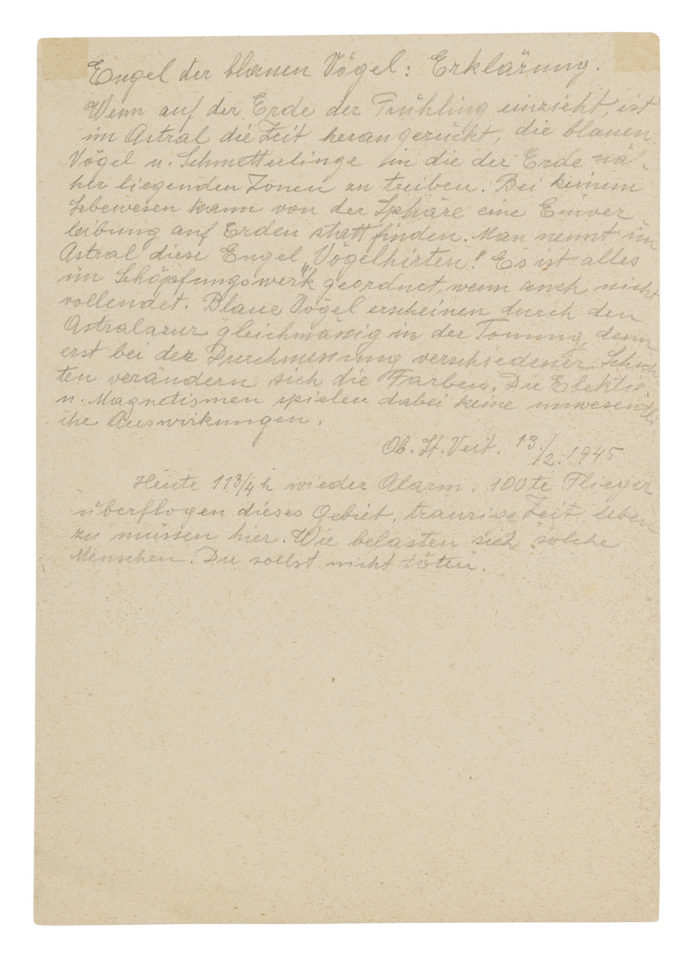 Engel der blauen Vögel: Erklärung.
Wenn auf der Erde der Frühling einzieht, ist
im Astral die Zeit herangerückt, die blauen
Vögel u. Schmetterlinge in die der Erde nä-
her liegenden Zonen zu treiben. Bei keinem
Lebewesen kann von der Sphäre eine Einver
leibung auf Erden stattfinden. Man nennt im
Astral diese Engel „Vögelhirten!" Es ist alles
im Schöpfungswerk geordnet wenn auch nicht
vollendet. Blaue Vögel erscheinen durch den
Astralazur gleichmässig in der Tönung, denn
erst bei der Durchmessung verschiedener Schich
ten verändern sich die Farben. Die Elektro
u. Magnetismen spielen dabei keine unwesentli
che Auswirkungen.
Ob. St. Veit. 13./2. 1945
Heute 11 3/4 h wieder Alarm. 100te Flieger
überflogen dieses Gebiet, traurige Zeit leben
zu müssen hier. Wie belasten sich solche
Menschen. Du sollst nicht töten.